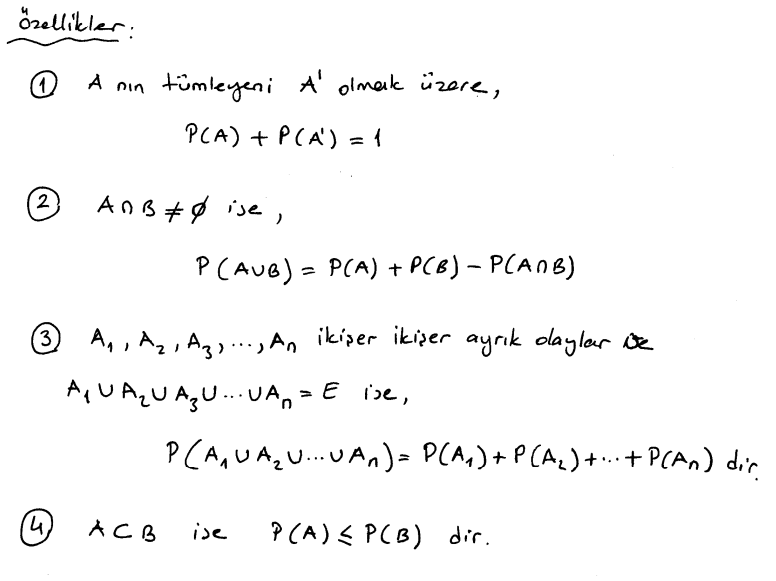 özellikler:
① A nın tümleyeni A' olmak üzere,
P(A) + P(A') = 1
② A∩B ≠ ∅ ise,
P(A∪B) = P(A) + P(B) − P(A∩B)
③ A₁, A₂, A₃, ..., Aₙ ikişer ikişer ayrık olaylar ve
A₁ ∪ A₂ ∪ A₃ ∪ ... ∪ Aₙ = E ise,
P(A₁ ∪ A₂ ∪ ... ∪ Aₙ) = P(A₁) + P(A₂) + ... + P(Aₙ) dir.
④ A ⊂ B ise P(A) ≤ P(B) dir.